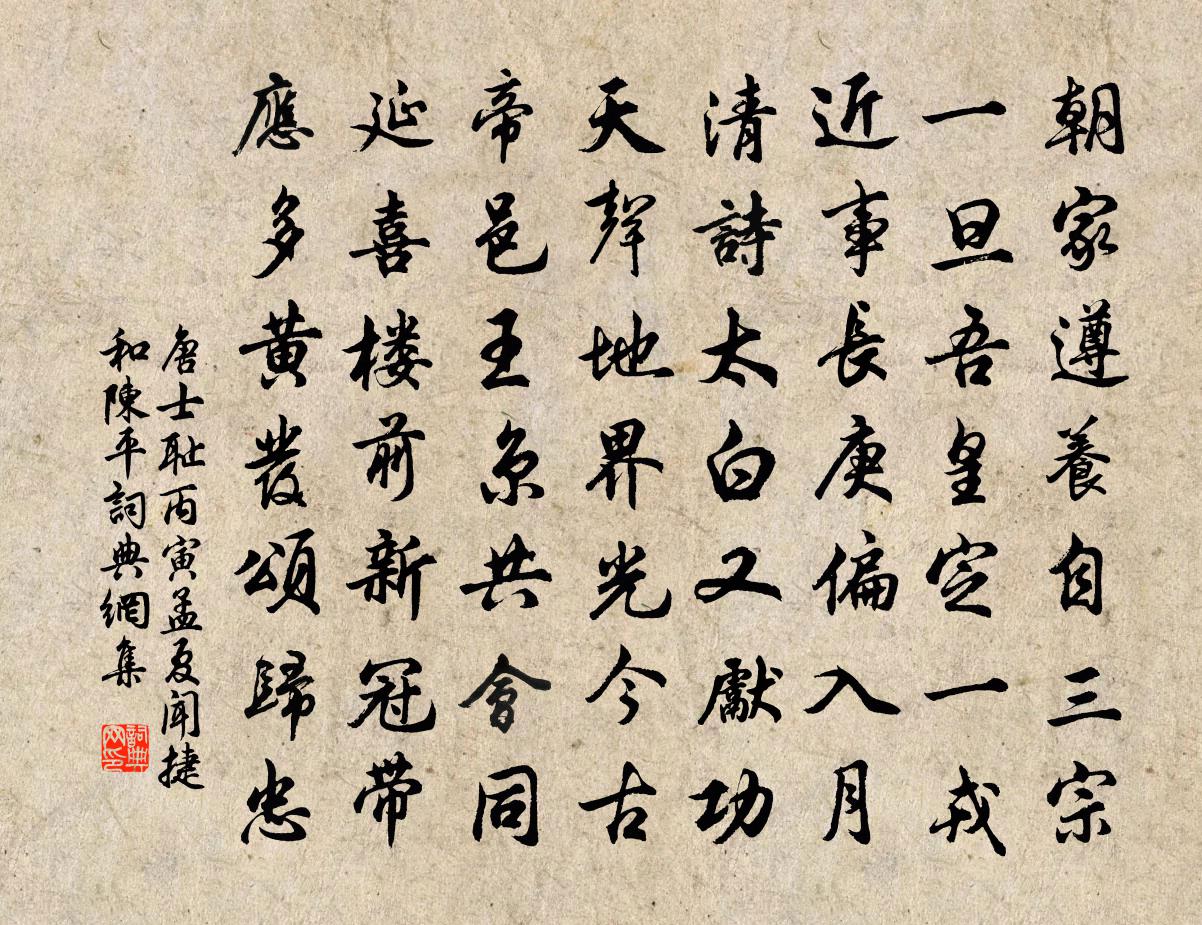 朝家遵養自三宗
一旦吾皇定一戎
近事長庚偏入月
清詩太白又獻功
天聲地界光今古
帝邑王京共會同
延喜楼前新冠帶
應多黄發頌歸忠
唐士耻丙寅孟夏聞捷
和陳平詞典網集
詞典网印